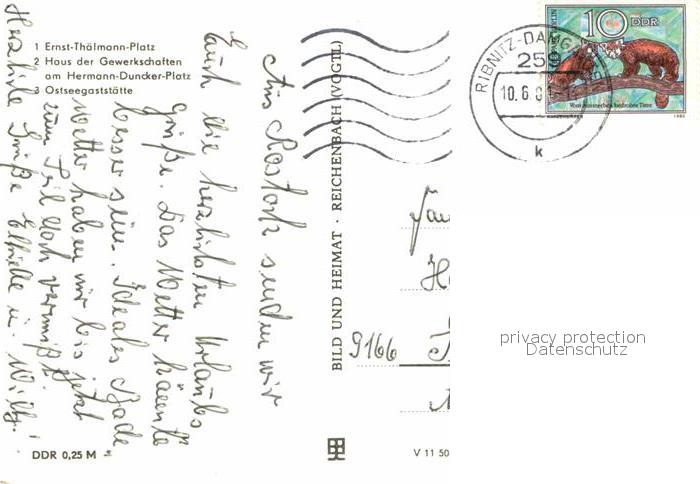 1 Ernst-Thälmann-Platz
2 Haus der Gewerkschaften
am Hermann-Duncker-Platz
3 Ostseegaststätte
Aus Rostock senden wir
Euch die herzlichsten Urlaubs
grüße. Das Wetter könnte
besser sein. Ideales Bade
wetter haben wir bis jetzt
zum Teil doch vermißt.
Herzliche Grüße Elfriede u. Willy!
DDR 0,25 M
BILD UND HEIMAT · REICHENBACH (VOGTL)
V 11 50
RIBNITZ-DAMG
25
10.6.8
k
10 DDR
Vom Aussterben bedrohte Tiere
1980
Fa
9166
privacy protection
Datenschutz